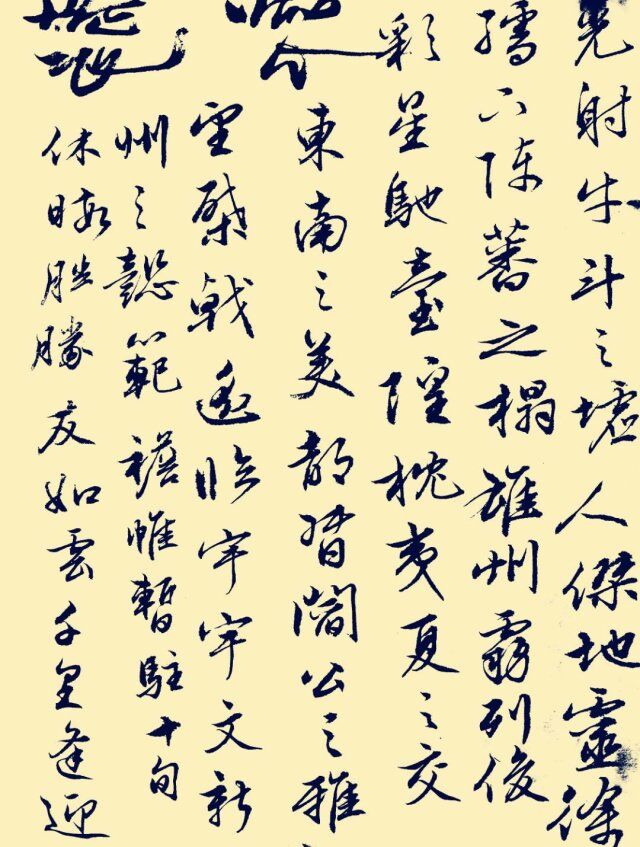 光射牛斗之墟人傑地靈徐
孺下陳蕃之榻雄州霧列俊
彩星馳臺隍枕夷夏之交
東南之美都督閻公之雅
望棨戟遙臨宇宇文新
州之懿範襜帷暫駐十旬
休暇胜勝友如雲千里逢迎